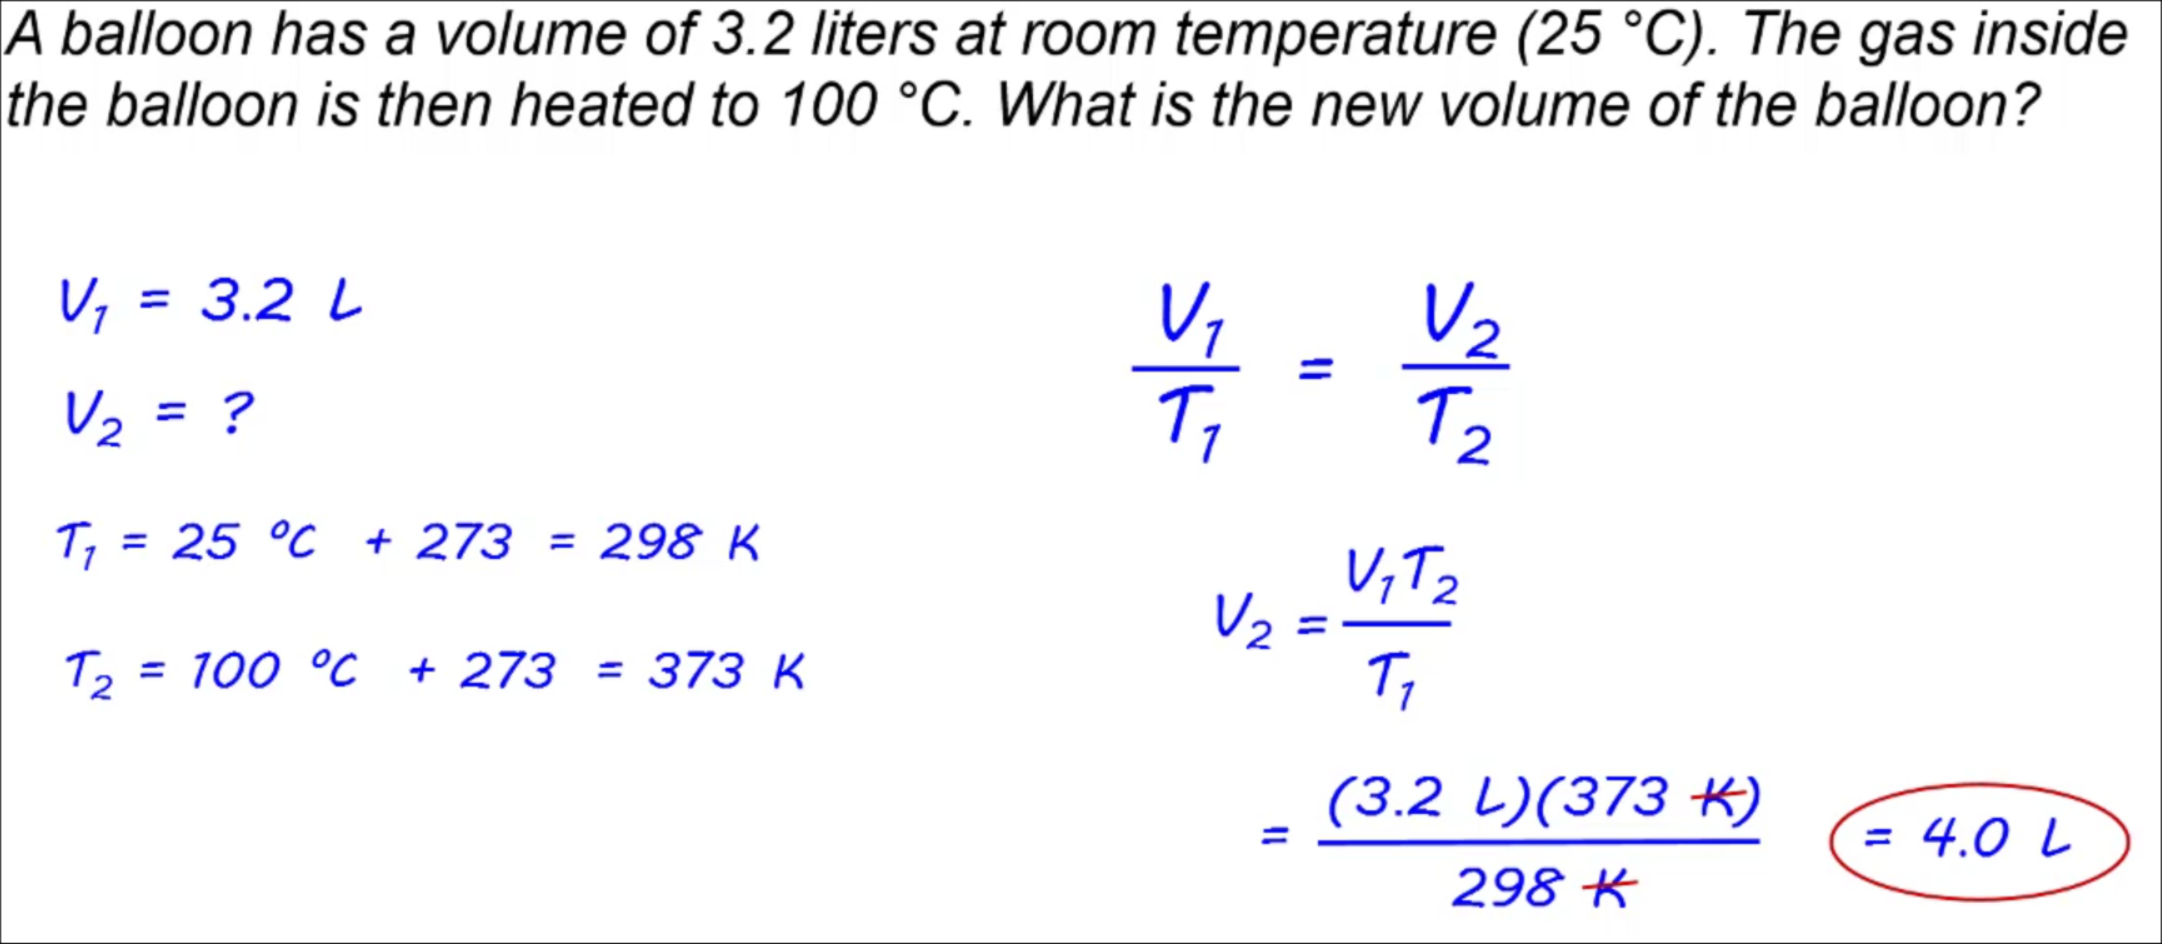 A balloon has a volume of 3.2 liters at room temperature (25 °C). The gas inside
the balloon is then heated to 100 °C. What is the new volume of the balloon?
V₁ = 3.2 L
V₂ = ?
T₁ = 25 °C + 273 = 298 K
T₂ = 100 °C + 273 = 373 K
V₁/T₁ = V₂/T₂
V₂ = V₁T₂/T₁
= (3.2 L)(373 K)/298 K = 4.0 L